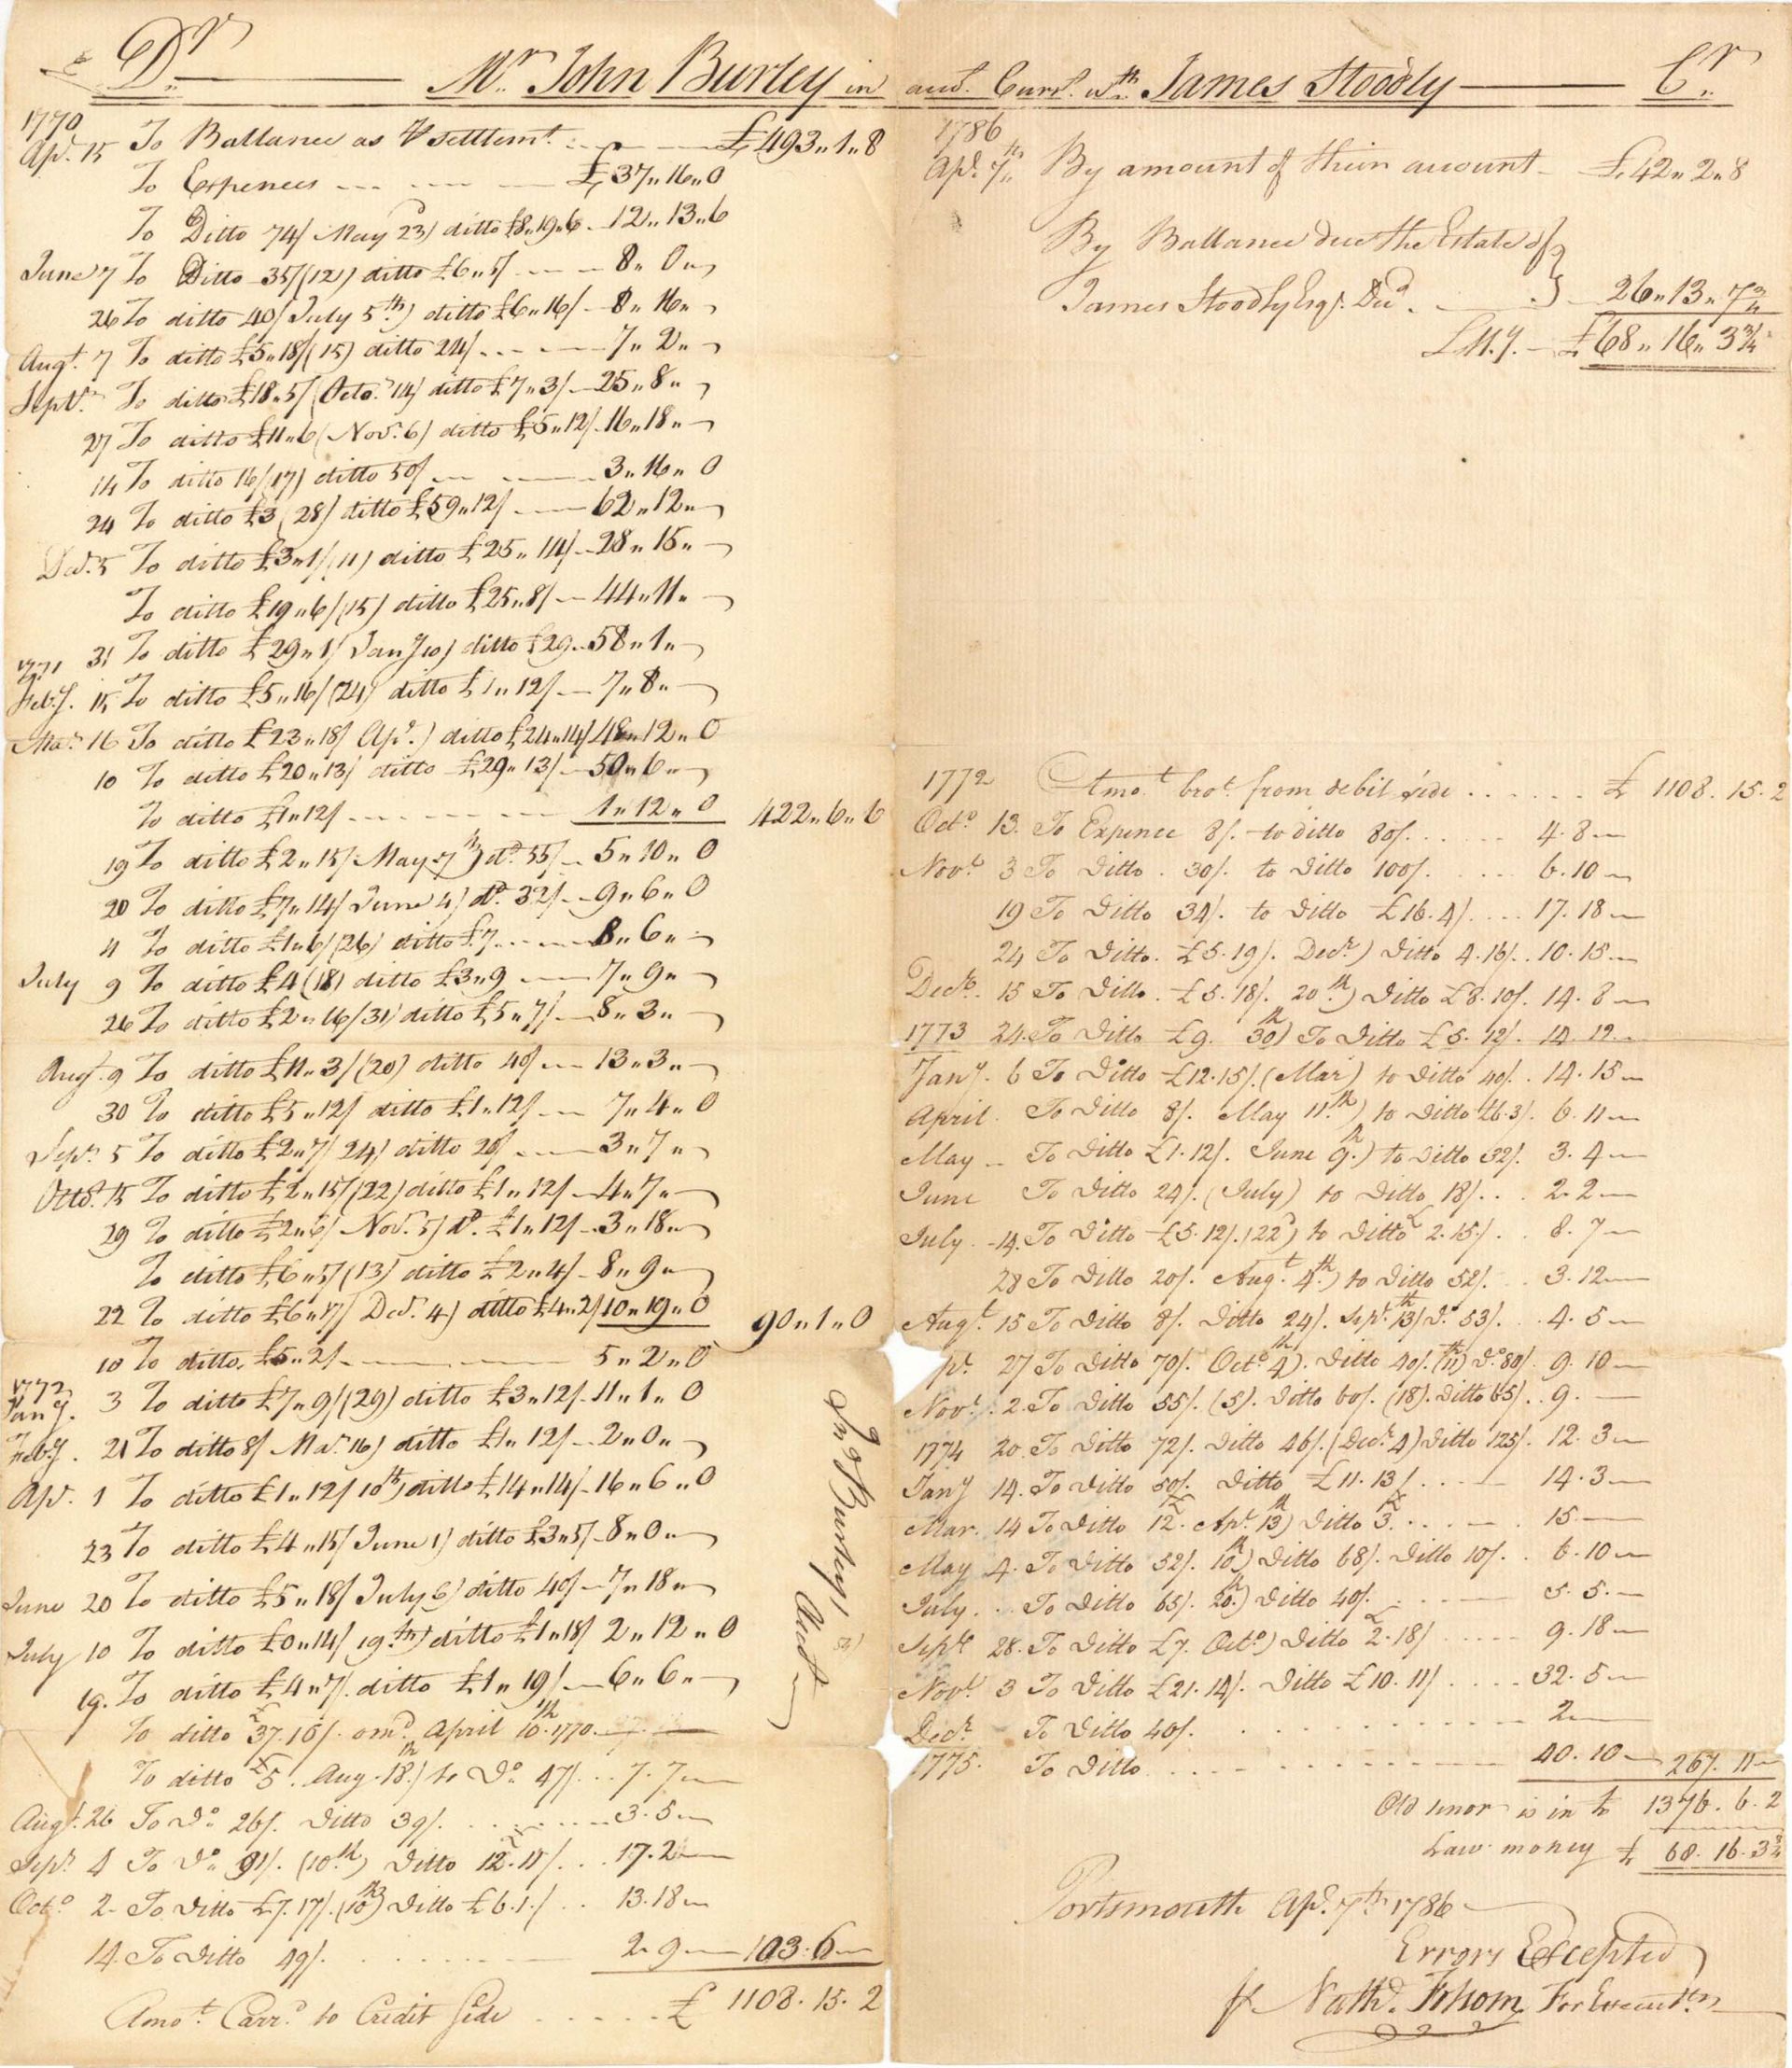 Dr Mr. John Burley in acct. Curr.t wth. James Stoodly Cr.
1770
Apr. 15 To Ballance as ⅌ settlemt. £493"1"8
To Expences £37"16"0
To Ditto 74/ May 23) ditto £8"19"6 12"13"6
June 7 To Ditto 35/(12) ditto £6"5/ 8"0"
26 To ditto 40/ July 5th) ditto £6"16/ 8"16"
Augt. 7 To ditto £5"18/(15) ditto 24/ 7"2"
Septr. To ditto £18"5/ (Octo. 14) ditto £7"3/ 25"8"
27 To ditto £11"6 (Novr. 6) ditto £5"12/ 16"18"
14 To ditto 16/(17) ditto 50/ 3"16"0
24 To ditto £3 (28) ditto £59"12/ 62"12"
Decr. 5 To ditto £3"1/(11) ditto £25"14/ 28"15"
To ditto £19"6/(15) ditto £25"8/ 44"11"
31 To ditto £29"1/ Jany 10) ditto £29 58"1"
1771
Feby. 15 To ditto £5"16/(24) ditto £1"12/ 7"8"
Mar. 16 To ditto £23"18/ Apr.) ditto £24"14/ 48"12"0
10 To ditto £20"13/ ditto £29"13/ 50"6"
To ditto £1"12/ 1"12"0 422"6"6
19 To ditto £2"15/ May 7th) do. 55/ 5"10"0
20 To ditto £7"14/ June 4) do. 32/ 9"6"0
4 To ditto £1"6/(26) ditto £7 8"6"
July 9 To ditto £4 (18) ditto £3"9 7"9"
26 To ditto £2"16/31) ditto £5"7/ 8"3"
Augt. 9 To ditto £11"3/(20) ditto 40/ 13"3"
30 To ditto £5"12/ ditto £1"12/ 7"4"0
Sepr. 5 To ditto £2"7/ 24) ditto 20/ 3"7"
Octo. 15 To ditto £2"15/(22) ditto £1"12/ 4"7"
29 To ditto £2"6/ Novr. 5) do. £1"12/ 3"18"
To ditto £6"5/(13) ditto £2"4/ 8"9"
22 To ditto £6"17/ Decr. 4) ditto £4"2/ 10"19"0 90"1"0
10 To ditto £5"2/ 5"2"0
1772
Jany. 3 To ditto £7"9/(29) ditto £3"12/ 11"1"0
Feby. 21 To ditto 8/ Mar. 16) ditto £1"12/ 2"0"
Apr. 1 To ditto £1"12/ 10th) ditto £14"14/ 16"6"0
23 To ditto £4"15/ June 1) ditto £3"5/ 8"0"
June 20 To ditto £5"18/ July 6) ditto 40/ 7"18"
July 10 To ditto £0"14/ 19th) ditto £1"18/ 2"12"0
19. To ditto £4"7/. ditto £1"19/ 6"6"
To ditto £37.16/. omd. April 10th. 1770
To ditto £5. Aug. 18th.) to Do. 47/. 7.7
Augt. 26 To Do. 26/. Ditto 39/. 3.5
Sepr. 4 To Do. 91/. (10th) Ditto £12.11/. 17.2
Octo. 2. To Ditto £7.17/. (10th) Ditto £6.1./ 13.18
14. To Ditto 49/. 2.9 103.6
Amot. Carrd. to Credit Side £ 1108.15.2
Jno. Burley, Acct
1786
Apr. 7th. By amount of their account £42"2"8
By Ballance due the Estate of
James Stoodly Esqr. Decd. 26"13"7¾
L M.y. £68"16"3¾
1772 Amot. brot. from debit side £ 1108.15.2
Octo. 13. To Expence 8/. to ditto 80/. 4.8
Novr. 3 To Ditto. 30/. to Ditto 100/. 6.10
19 To Ditto 34/. to Ditto £16.4/. 17.18
24 To Ditto. £5.19/. Decr.) Ditto 4.16/. 10.15
Decr. 15 To Ditto. £5.18/. 20th.) Ditto £8.10/. 14.8
1773 24. To Ditto £9. 30th) To Ditto £5.12/. 14.12
Jany. 6 To Ditto £12.15/. (Mar) to Ditto 40/. 14.15
April. To Ditto 8/. May 11th.) to Ditto £6.3/. 6.11
May To Ditto £1.12/. June 9th.) to Ditto 32/. 3.4
June To Ditto 24/. (July) to Ditto 18/. 2.2
July 14. To Ditto £5.12/. (22d) to Ditto £2.15/. 8.7
28 To Ditto 20/. Augt. 4th.) to Ditto 52/. 3.12
Augt. 15 To Ditto 8/. Ditto 24/. Sepr. 13th) Do. 53/. 4.5
pr. 27 To Ditto 70/. Octo. 4th). Ditto 40/. (11th) Do. 80/. 9.10
Novr. 2. To Ditto 55/. (5). Ditto 60/. (18). Ditto 65/. 9.
1774 20. To Ditto 72/. Ditto 46/. (Decr. 4) Ditto 125/. 12.3
Jany 14. To Ditto 50/. Ditto £11.13/. 14.3
Mar. 14 To Ditto £12. Apr. 13th) Ditto £3. 15
May 4. To Ditto 52/. 10th.) Ditto 68/. Ditto 10/. 6.10
July. To Ditto 65/. 20th.) Ditto 40/. 5.5.
Septr. 28. To Ditto £7. Octo.) Ditto £2.18/ 9.18
Novr. 3 To Ditto £21.14/. Ditto £10.11/ 32.5
Decr. To Ditto 40/. 2
1775. To Ditto 40.10 267.11
Old tenor is in to 1376.6.2
Law. money £ 68.16.3¾
Portsmouth Apr. 7th 1786
Errors Excepted
⅌ Nathl. Folsom For Execut.rs